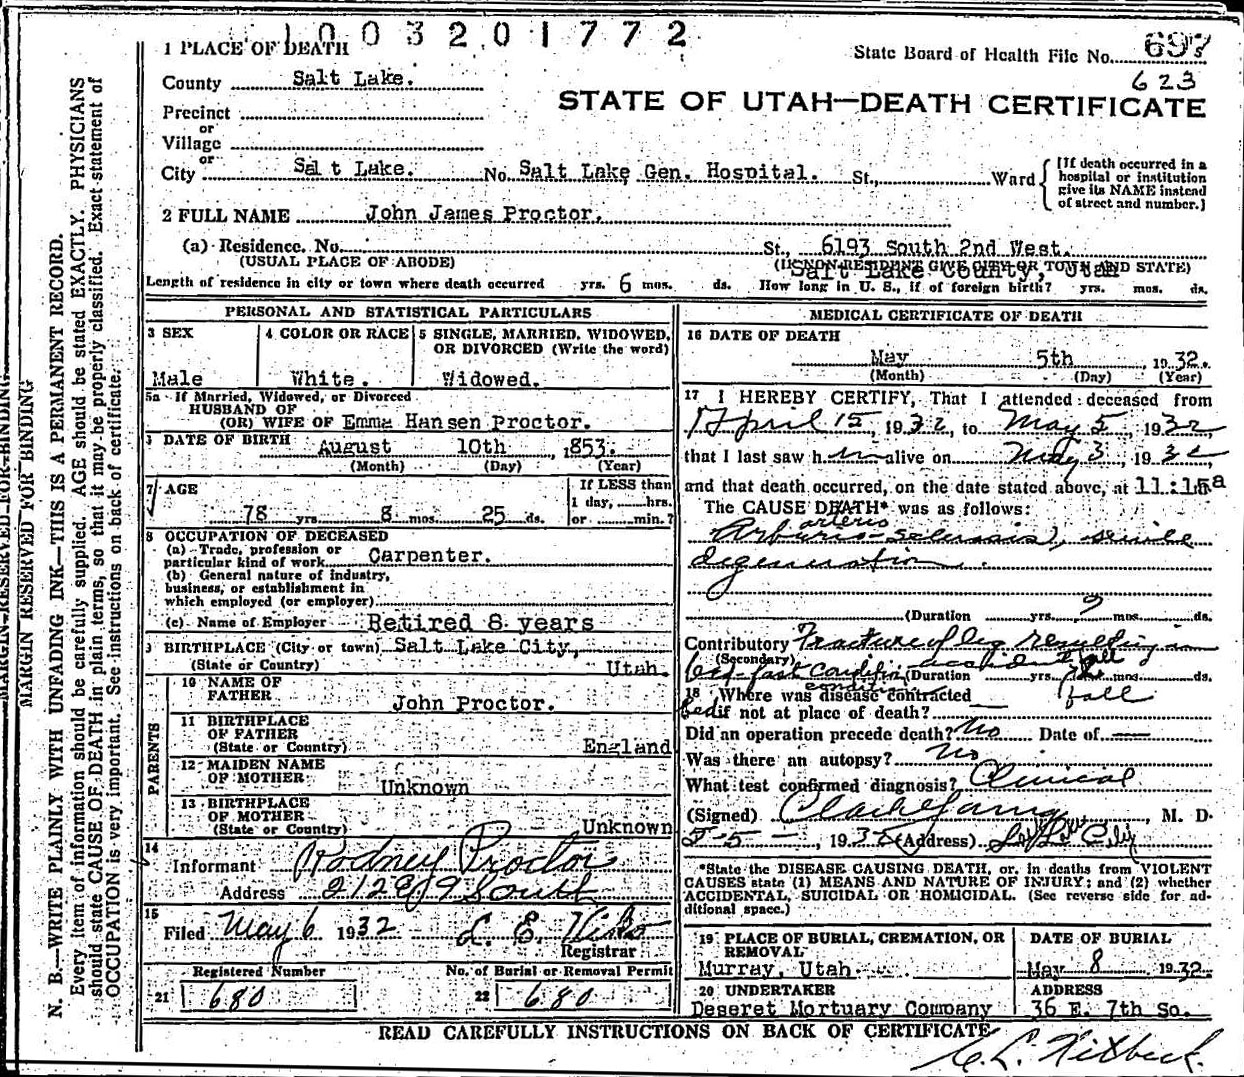 1003201772
1 PLACE OF DEATH
State Board of Health File No. 697
623
County Salt Lake.
STATE OF UTAH—DEATH CERTIFICATE
Precinct
or
Village
or
City Salt Lake. No. Salt Lake Gen. Hospital. St., Ward
[If death occurred in a
hospital or institution
give its NAME instead
of street and number.]
2 FULL NAME John James Proctor.
(a) Residence. No. St., 6193 South 2nd West.
(USUAL PLACE OF ABODE) (IF NON-RESIDENT GIVE CITY OR TOWN AND STATE)
Salt Lake County, Utah
Length of residence in city or town where death occurred yrs. 6 mos. ds. How long in U. S., if of foreign birth? yrs. mos. ds.
PERSONAL AND STATISTICAL PARTICULARS
3 SEX
Male
4 COLOR OR RACE
White.
5 SINGLE, MARRIED, WIDOWED,
OR DIVORCED (Write the word)
Widowed.
5a If Married, Widowed, or Divorced
HUSBAND OF
(OR) WIFE OF Emma Hansen Proctor.
DATE OF BIRTH August 10th 1853.
(Month) (Day) (Year)
7 AGE
78 yrs. 8 mos. 25 ds.
If LESS than
1 day, hrs.
or min.?
8 OCCUPATION OF DECEASED
(a) Trade, profession or
particular kind of work Carpenter.
(b) General nature of industry,
business, or establishment in
which employed (or employer)
(c) Name of Employer Retired 8 years
9 BIRTHPLACE (City or town) Salt Lake City,
(State or Country) Utah.
PARENTS
10 NAME OF
FATHER John Proctor.
11 BIRTHPLACE
OF FATHER
(State or Country) England
12 MAIDEN NAME
OF MOTHER Unknown
13 BIRTHPLACE
OF MOTHER
(State or Country) Unknown
14
Informant Rodney Proctor
Address 212 E 9 South
15
Filed May 6 1932 L. E.
Registrar
Registered Number
21 680
No. of Burial or Removal Permit
22 680
MEDICAL CERTIFICATE OF DEATH
16 DATE OF DEATH
May 5th, 1932.
(Month) (Day) (Year)
17 I HEREBY CERTIFY, That I attended deceased from
April 15, 1932, to May 5, 1932,
that I last saw him alive on May 3, 1932
and that death occurred, on the date stated above, at 11:15a
The CAUSE DEATH* was as follows:
arterio
sclerosis, senile
degeneration.
(Duration yrs. ? mos. ds.
Contributory Fracture of leg resulting
(Secondary) accident fall
(Duration yrs.
18 Where was disease contracted fall
if not at place of death?
Did an operation precede death? No Date of
Was there an autopsy? No
What test confirmed diagnosis? Clinical
(Signed) , M. D.
5-5 , 1932 (Address) City
*State the DISEASE CAUSING DEATH, or, in deaths from VIOLENT
CAUSES state (1) MEANS AND NATURE OF INJURY; and (2) whether
ACCIDENTAL, SUICIDAL OR HOMICIDAL. (See reverse side for ad-
ditional space.)
19 PLACE OF BURIAL, CREMATION, OR
REMOVAL
Murray, Utah.
DATE OF BURIAL
May 8 1932.
20 UNDERTAKER
Deseret Mortuary Company
ADDRESS
36 E. 7th So.
READ CAREFULLY INSTRUCTIONS ON BACK OF CERTIFICATE
MARGIN RESERVED FOR BINDING
MARGIN RESERVED FOR BINDING
N. B.—WRITE PLAINLY WITH UNFADING INK—THIS IS A PERMANENT RECORD.
Every item of information should be carefully supplied. AGE should be stated EXACTLY. PHYSICIANS
should state CAUSE OF DEATH in plain terms, so that it may be properly classified. Exact statement of
OCCUPATION is very important. See instructions on back of certificate.